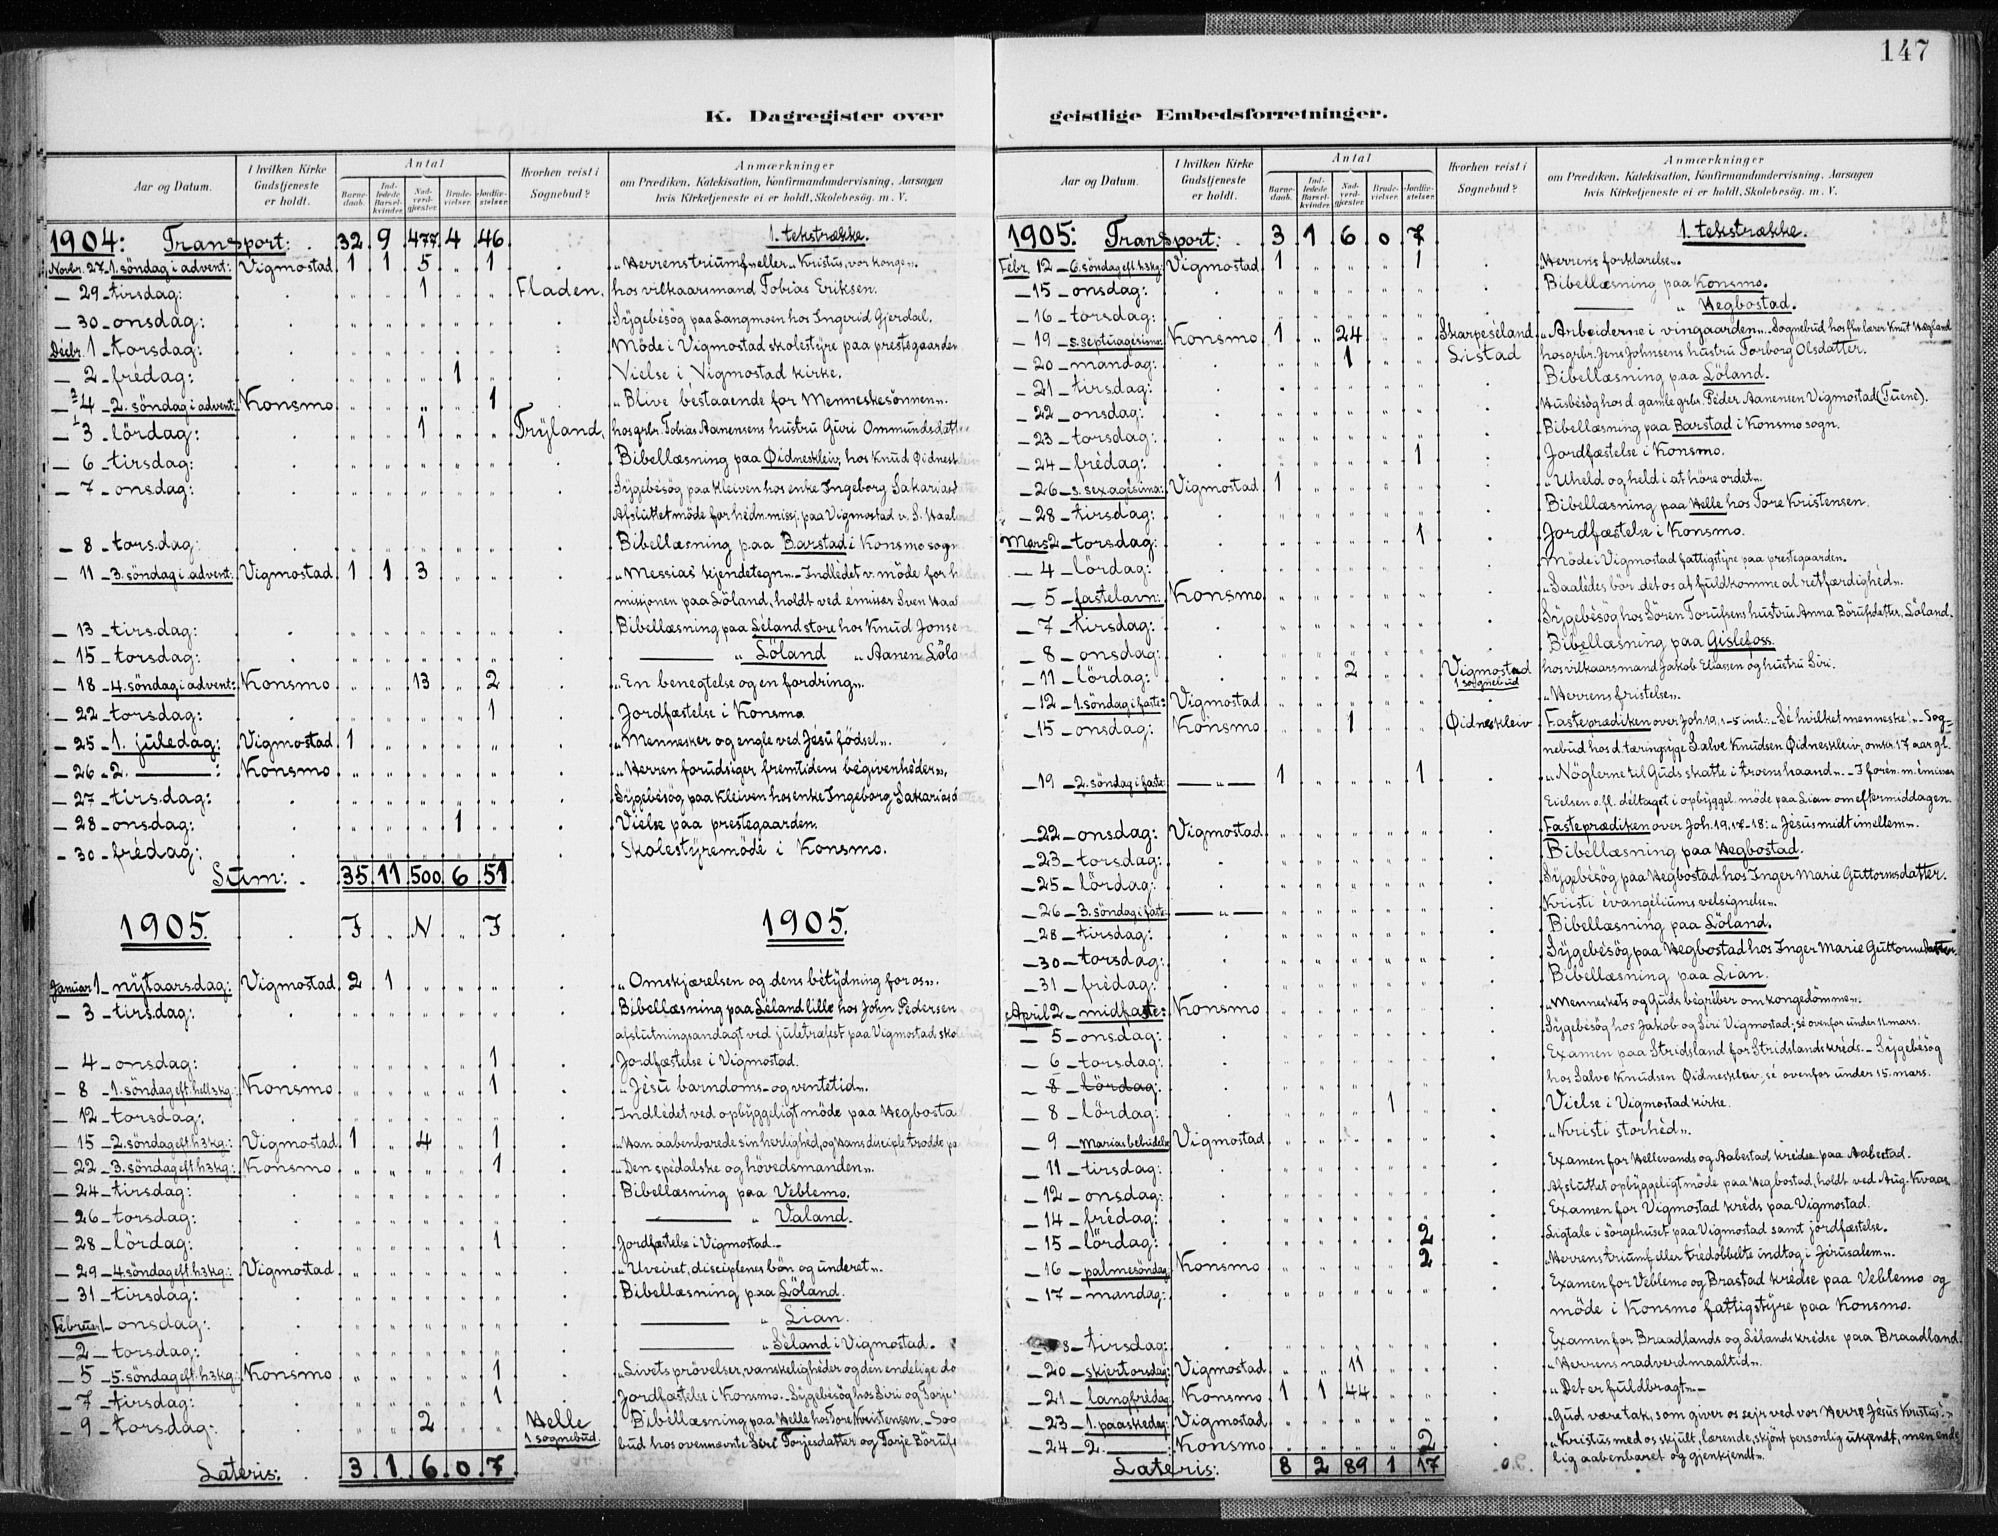 147
K. Dagregister over geistlige Embedsforretninger.
Aar og Datum. I hvilken Kirke Gudstjeneste er holdt. Antal Barnedaab. Indledede Barselkvinder. Nadverdgjæster. Brudevielser. Jordfæstelser. Hvorhen reist i Sognebud? Anmærkninger om Prædiken, Katekisation, Konfirmandundervisning, Aarsagen hvis Kirketjeneste ei er holdt, Skolebesøg. m. V.
1904: Transport: 32 9 477 4 46 1. tekstrække.
Novbr. 27 - 1. söndag i advent: Vigmostad 1 1 5 „ 1 „Herrens triumf“ eller „Kristus, vor konge“.
- 29 - tirsdag: „ „ 1 „ „ Fladen. hos vilkaarsmand Tobias Eriksen.
- 30 - onsdag: Sÿgebésög paa Langmoen hos Ingerid Gjerdal.
Décbr. 1 - torsdag: Möde i Vigmostad skolestÿre paa prestegaarden
- 2 - frédag: „ „ „ 1 „ Vielse i Vigmostad kirke.
- 4 - 2. söndag i advent: Konsmo „ „ „ „ 1 „Blive béstaaende for Menneskesönnen“.
- 3 - lördag: „ „ 1 „ „ Frÿland, hos grbr. Tobias Aanensens hustru Guri Ommundsdatter
- 6 - tirsdag: Bibellæsning paa Øidneskleiv, hos Knud Øidneskleiv
- 7 - onsdag: Sÿgebésög paa Kleiven hos enke Ingeborg Sakariasdatter
Afsluttet möde for hédn. missj. paa Vigmostad v. S.
- 8 - torsdag: Bibellæsning paa Barstad i Konsmo sogn
- 11 - 3. söndag i advent: Vigmostad 1 1 3 „ „ „Messias' kjendetegn“. - Indlédet v. möde for
missjonen paa Löland, holdt ved émissær Sven
- 13 - tirsdag: Bibellæsning paa Séland store hos Knud Jonsen
- 15 - torsdag: ——— „ Löland „ Aanen Löland
- 18 - 4. söndag i advent: Konsmo „ „ 13 „ 2 „En benegtelse og en fordring“.
- 22 - torsdag: „ „ „ „ 1 Jordfæstelse i Konsmo
- 25 - 1. juledag: Vigmostad 1 „ „ „ „ „Mennesker og engle ved Jésu födsel“.
- 26 - 2. ———: Konsmo „Herren forudsiger fremtidens bégivenhéder“.
- 27 - tirsdag: Sÿgebésög paa Kleiven hos enke Ingeborg Sakariasdatter
- 28 - onsdag: „ „ „ 1 „ Vielse paa prestegaarden.
- 30 - frédag: Skolestÿremöde i Konsmo.
Sum: 35 11 500 6 51
1905. J „ N „ J 1905.
Januar 1 - nÿtaarsdag: Vigmostad 2 1 „ „ „ „Omskjærelsen og dens bétÿdning for os“.
- 3 - tirsdag: Bibellæsning paa Séland lille hos John Pedersen og
afslutningsandagt ved juletræfest paa Vigmostad
- 4 - onsdag: „ „ „ „ 1 Jordfæstelse i Vigmostad.
- 8 - 1. söndag eft. hell.3kg.: Konsmo „ „ „ „ 1 „Jésu barndoms- og ventetid“.
- 12 - torsdag: Indlédet ved opbÿggeligt möde paa Hegbostad
- 15 - 2. söndag eft. h3kg.: Vigmostad 1 „ 4 „ 1 „Han aabenbarede sin herlighéd, og Hans disciple trodde
- 22 - 3. söndag eft. h3kg.: Konsmo „ „ „ „ 1 „Den spédalske og hövedsmanden“.
- 24 - tirsdag: Bibellæsning paa Veblemo.
- 26 - torsdag: ——— „ Valand.
- 28 - lördag: „ „ „ „ 1 Jordfæstelse i Vigmostad.-
- 29 - 4. söndag eft. h3kg.: Vigmostad „Uveiret, disciplenes bön og underet“.
- 31 - tirsdag: Bibellæsning paa Löland.
Februar 1 - onsdag: ——— „ Lian.
- 2 - torsdag: ——— „ Séland i Vigmostad.
- 5 - 5. söndag eft. h3kg.: Konsmo „ „ „ „ 1 „Livets prövelser, vanskelighéder og den endelige
- 7 - tirsdag: „ „ „ „ 1 Jordfæstelse i Konsmo. - Sÿgebésög hos Siri og Tarje
- 9 - torsdag: „ „ 2 „ „ Helle 1 sognebud. Bibellæsning paa Helle hos Tore Kristensen. - Sog
bud hos ovennævnte Siri Tarjesdatter og Tarje
Lateris: 3 1 6 0 7
Aar og Datum. I hvilken Kirke Gudstjeneste er holdt. Antal Barnedaab. Indledede Barselkvinder. Nadverdgjæster. Brudevielser. Jordfæstelser. Hvorhen reist i Sognebud? Anmærkninger om Prædiken, Katekisation, Konfirmandundervisning, Aarsagen hvis Kirketjeneste ei er holdt, Skolebesøg. m. V.
1905: Transport: 3 1 6 0 7 1. tekstrække.
Febr. 12 - 6. söndag eft. h3kg: Vigmostad 1 „ „ „ 1 „Herrens forklarelse“.
- 15 - onsdag: Bibellæsning paa Konsmo.
- 16 - torsdag: ——— „ Hegbostad.
- 19 - s. septuagésima: Konsmo 1 „ 24 „ „ Skarpeséland „Arbeiderne i vingaarden“. Sognebud hos fhv. lærer Knut Hægland
- 20 - mandag: „ „ 1 „ „ Listad hos grbr. Jens Johnsens hustru Torborg Olsdatter.
- 21 - tirsdag: Bibellæsning paa Löland.
- 22 - onsdag: Husbésög hos d. gamle grbr. Péder Aanensen Vigmostad (Tuene).
- 23 - torsdag: Bibellæsning paa Barstad i Konsmo sogn.
- 24 - frédag: „ „ „ „ 1 Jordfæstelse i Konsmo.
- 26 - s. sexagésima: Vigmostad 1 „Uheld og held i at höre ordet“.
- 28 - tirsdag: Bibellæsning paa Helle hos Tore Kristensen.
Mars 2 - torsdag: „ „ „ „ 1 Jordfæstelse i Konsmo.
- 4 - lördag: Möde i Vigmostad fattigstÿre paa prestegaarden.
- 5 - fastelavn: Konsmo „Saalédes bör det os at fuldkomme al retfærdighéd“.
- 7 - tirsdag: Sÿgebésög hos Sören Torufsens hustru Anna Börufsdatter, Löland.
- 8 - onsdag: Bibellæsning paa Gislefoss.
- 11 - lördag: „ „ 2 „ „ Vigmostad 1 sognebud hos vilkaarsmand Jakob Eliassen og hustru Siri.
- 12 - 1. söndag i faste: Vigmostad „Herrens fristelse“.
- 15 - onsdag: Konsmo „ „ 1 „ „ Øidneskleiv Fasteprædiken over Joh. 19. 1-5 incl.: „Sé hvilket menneske!“ - Sog-
nebud hos d. tæringsÿge Salve Knudsen Øidneskleiv, omkr. 17 aar gl.
- 19 - 2. söndag i faste: — „ — 1 „ „ „ 1 „Nöglerne til Guds skatte i troens haand“. - I forén. m. émissær
Eielsen o.fl. déltaget i opbÿggel. möde paa Lian om eftermiddagen.
- 22 - onsdag: Vigmostad Fasteprædiken over Joh. 19. 17-18: „Jésus midt imellem“.
- 23 - torsdag: Bibellæsning paa Hegbostad.
- 25 - lördag: Sÿgebésög paa Hegbostad hos Inger Marie Guttormsdatter.
- 26 - 3. söndag i faste: — „ — „Kristi évangéliums velsignelse“.
- 28 - tirsdag: Bibellæsning paa Löland.
- 30 - torsdag: Sÿgebésög paa Hegbostad hos Inger Marie Guttormsdatter.
- 31 - frédag: Bibellæsning paa Lian.
April 2 - midfaste: Konsmo „Menneskets og Guds bégréber om kongedömme“.
- 5 - onsdag: Sÿgebésög hos Jakob og Siri Vigmostad; sé ovenfor under 11. mars.
- 6 - torsdag: Examen paa Stridsland for Stridslands kréds. - Sÿgebésög
- 8 - lördag: hos Salve Knudsen Øidneskleiv, sé ovenfor under 15. mars.
- 8 - lördag: „ „ „ 1 „ Vielse i Vigmostad kirke.
- 9 - Marias bebudelse Vigmostad „Kristi storhéd“.
- 11 - tirsdag: Examen for Hellevands og Aabestad krédse paa Aabestad.
- 12 - onsdag: Afsluttet opbÿggeligt möde paa Hegbostad, holdt ved Aug. Kvaas
- 14 - frédag: Examen for Vigmostad kréds paa Vigmostad.
- 15 - lördag: „ „ „ „ 2 Ligtale i sörgehuset paa Vigmostad samt jordfæstelse.
- 16 - palmesöndag: Konsmo „ „ „ „ 2 „Herrens triumf eller trédobbelte indtog i Jérusalem“.
- 17 - mandag: Examen for Veblemo og Brastad krédse paa Veblemo og
möde i Konsmo fattigstÿre paa Konsmo.
8 - tirsdag: Examen for Braadlands og Sélands krédse paa Braadland.
- 20 - skjertorsdag: Vigmostad „ „ 11 „ „ „Herrens nadverdmaaltid“.
- 21 - langfrédag: Konsmo 1 1 44 „ „ „Det er fuldbragt“.-
- 23 - 1. paaskedag: Vigmostad „Gud være tak, som giver os sejr ved vor Herre Jésus Kristus!“
- 24 - 2. ———: Konsmo „ „ „ „ 2 „Kristus med os skjult, lærende, skjönt personlig ukjendt, men ende
lig aabenbaret og gjenkjendt“.
Lateris: 8 2 89 1 17